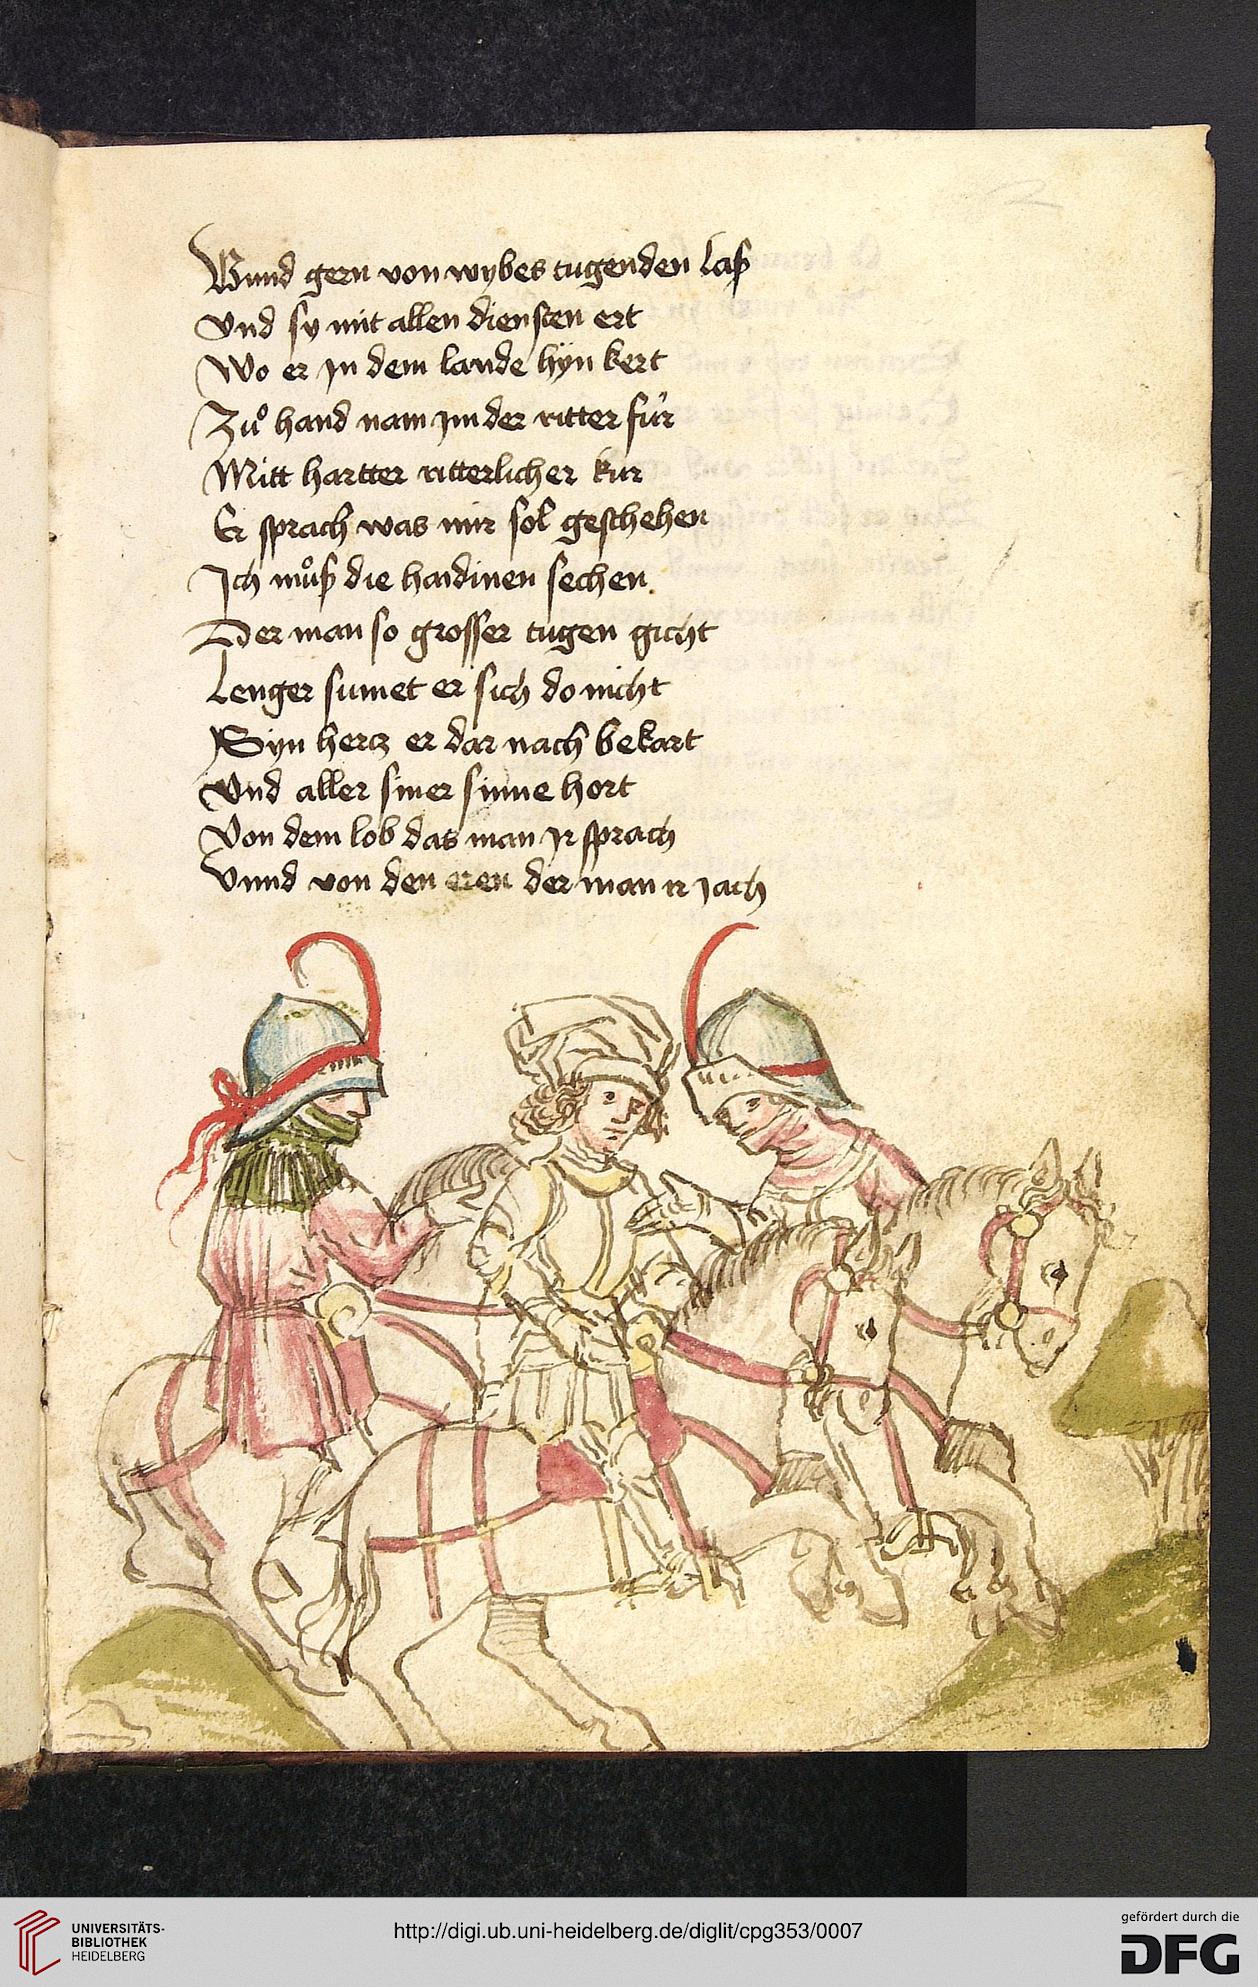 Wund gern von wybes tugenden laß
Vnd sy mit allen diensten ert
Wo er jn dem lande hÿn kert
Zuͦ hand nam jm der ritter für
Mitt hartter ritterlicher kur
Er sprach was mir sol geschehen
Ich muͦß die haidinen sechen
Der man so grosser tugen gicht
Lenger sumet er sich do nicht
Syn hercz er dar nach bekart
Vnd aller siner sinne hort
Von dem lob das man jr sprach
Vnnd von den eren der man ir jach
UNIVERSITÄTS-
BIBLIOTHEK
HEIDELBERG
http://digi.ub.uni-heidelberg.de/diglit/cpg353/0007
gefördert durch die
DFG